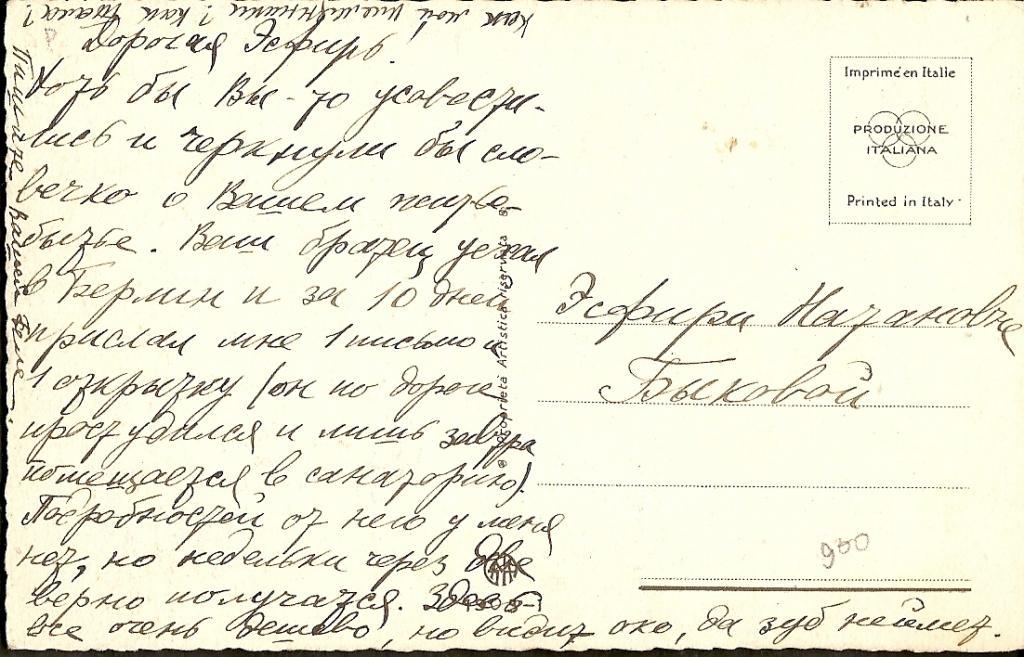 Как мой племянник? Как Мама?
Дорогая Эсфирь!
Хоть бы Вы-то усовести-
лись и черкнули бы сло-
вечко о Вашем житье-
бытье. Ваш братец уехал
в Берлин и за 10 дней
прислал мне 1 письмо и
1 открытку (он по дороге
простудился и лишь завтра
помещается в санаторию).
Подробностей от него у меня
нет, но недельки через две
верно получатся. Здесь
все очень дешево, но видит око, да зуб неймет.
Пишите Вашей Белле.
Imprimé en Italie
PRODUZIONE
ITALIANA
Printed in Italy
© Proprietà Artistica riservata ®
Эсфири Натановне
Быковой
900